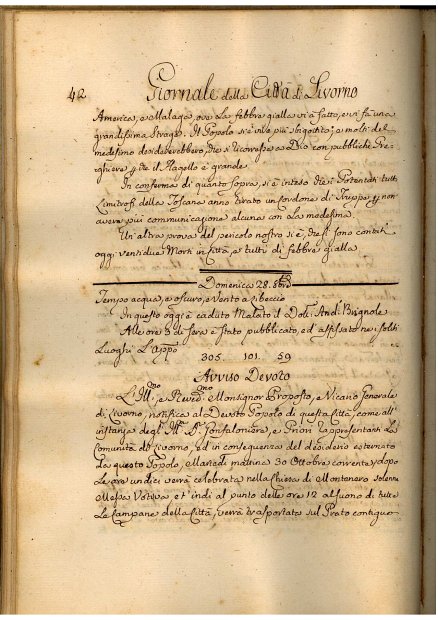 42 Giornale della Città di Livorno
America, e Malaga, ove la febbre gialla vi à fatto, e vi fà una
grandissima Strage. Il Popolo si è vie più sbigottito; e molti del
medesimo desidererebbero, che si ricorresse a Dio con pubbliche Pre-
ghiere, che il Flagello è grande
In conferma di quanto sopra, si è inteso che i Potentati tutti
Limitrofi della Toscana anno tirato un Cordone di Truppe, p non
avere più comunicazione alcuna con la medesima.
Un'altra prova del pericolo nostro si è, che si sono contati
oggi ventidue Morti in Città, e tutti di febbre gialla
Domenica 28. 8bre
Tempo acqua, e oscuro, e Vento a Libeccio
In questo oggi è caduto Malato il Dott. And. Brignole
Alle ore 3 di sera è stato pubblicato, ed affissato nei soliti
Luoghi L'Appo
305. 101. 59
Avviso Devoto
L'Ill.mo, e Rev.mo Monsignor Proposto, e Vicario Generale
di Livorno, notifica al Devoto Popolo di questa Città, come all'
instanza degl'Ill. Gonfaloniere, e Priori rappresentanti la
Comunità di Livorno, ed in consequenza del desiderio esternato
da questo Popolo, Martedì mattina 30 Ottobre corrente, dopo
le ore undici verrà celebrata nella Chiesa di Montenero solenne
Messa Votiva e d'indi al punto delle ore 12 al suono di tutte
le Campane della Città, verrà trasportata sul Prato contiguo